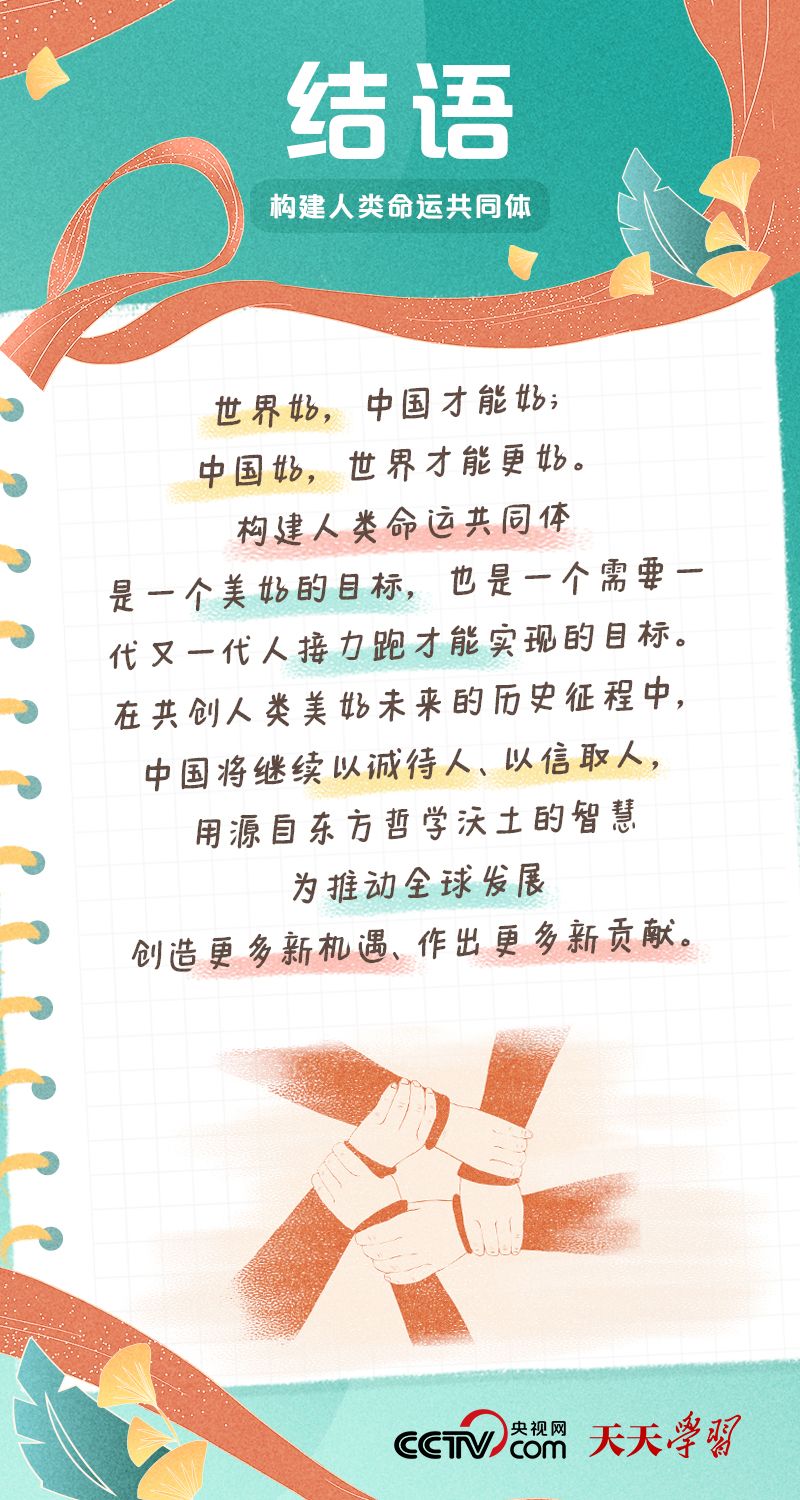 结语
构建人类命运共同体
世界好，中国才能好；
中国好，世界才能更好。
构建人类命运共同体
是一个美好的目标，也是一个需要一
代又一代人接力跑才能实现的目标。
在共创人类美好未来的历史征程中，
中国将继续以诚待人、以信取人，
用源自东方哲学沃土的智慧
为推动全球发展
创造更多新机遇、作出更多新贡献。
CCTV央视网.com
天天學習